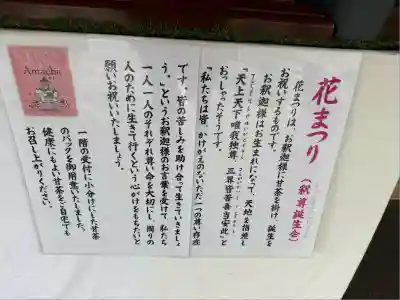 花まつり（釈尊誕生会）
花まつりは、お釈迦様に甘茶を掛け、誕生を
お祝いするものです。
お釈迦様はお生まれになって、天地を指差し
「天上天下唯我独尊、三界皆苦吾当安此」と
おっしゃったそうです。
「私たちは皆、かけがえのないただ一つの尊い存在
です。皆の苦しみを助け合って生きていきましょ
う。」というお釈迦様のお言葉を受けて、私たち
一人一人のそれぞれ尊い命を大切にし、周りの
人のために生きて行くという心がけをもちたいと
願いお祝いいたしましょう。
一階の受付に小分けにした甘茶
のパックを御用意いたしました。
健康にもよい甘茶をご自宅でも
お召し上がりください。
Amacha